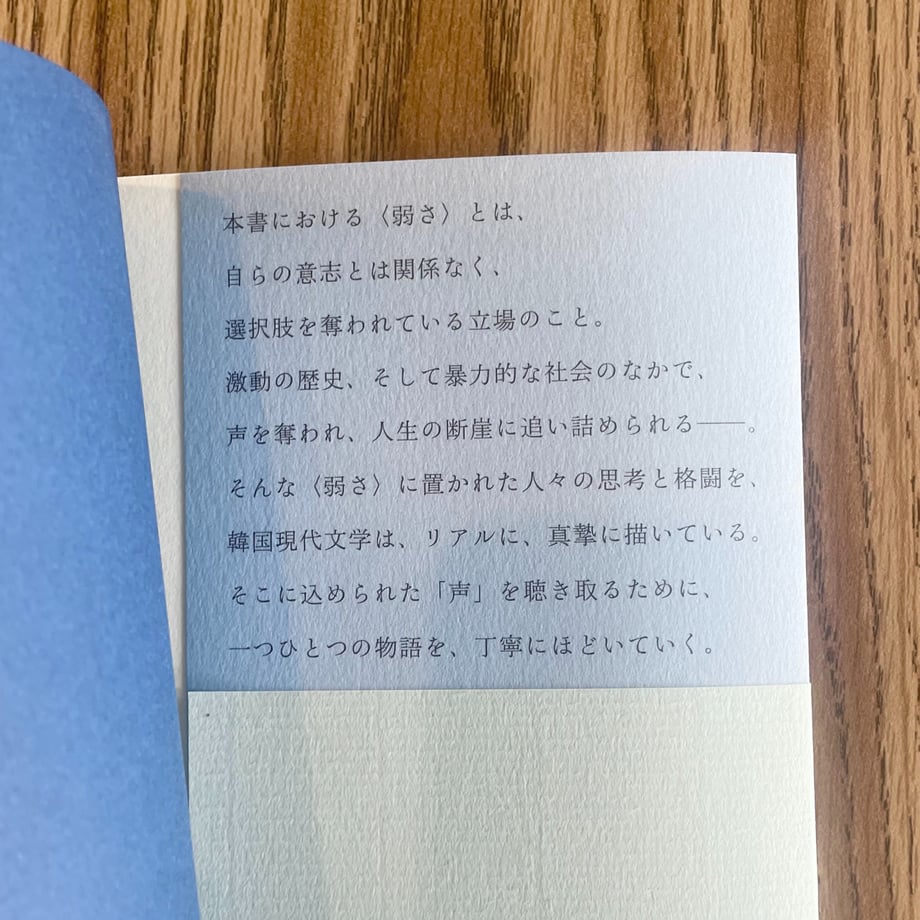 本書における〈弱さ〉とは、
自らの意志とは関係なく、
選択肢を奪われている立場のこと。
激動の歴史、そして暴力的な社会のなかで、
声を奪われ、人生の断崖に追い詰められる――。
そんな〈弱さ〉に置かれた人々の思考と格闘を、
韓国現代文学は、リアルに、真摯に描いている。
そこに込められた「声」を聴き取るために、
一つひとつの物語を、丁寧にほどいていく。